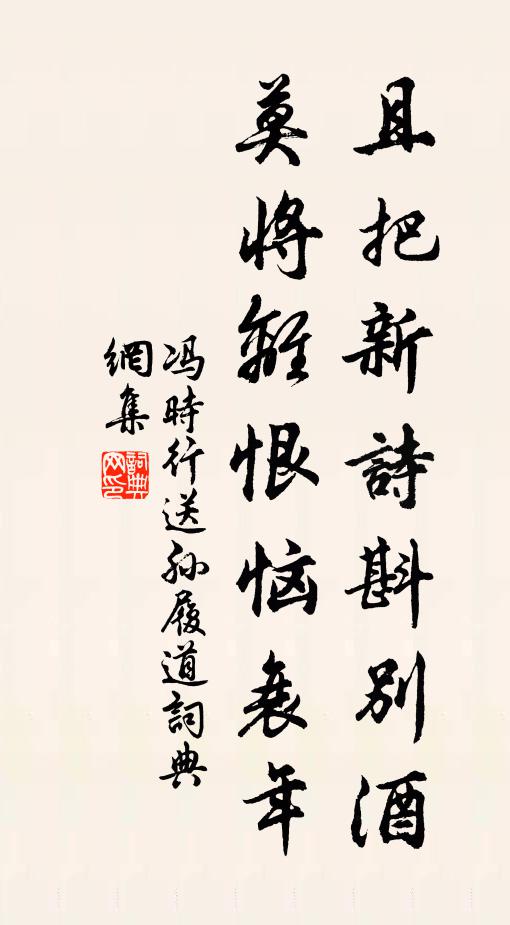 且把新詩斟別酒
莫將離恨惱衰年
馮時行送孙履道詞典
網集
詞典
网印